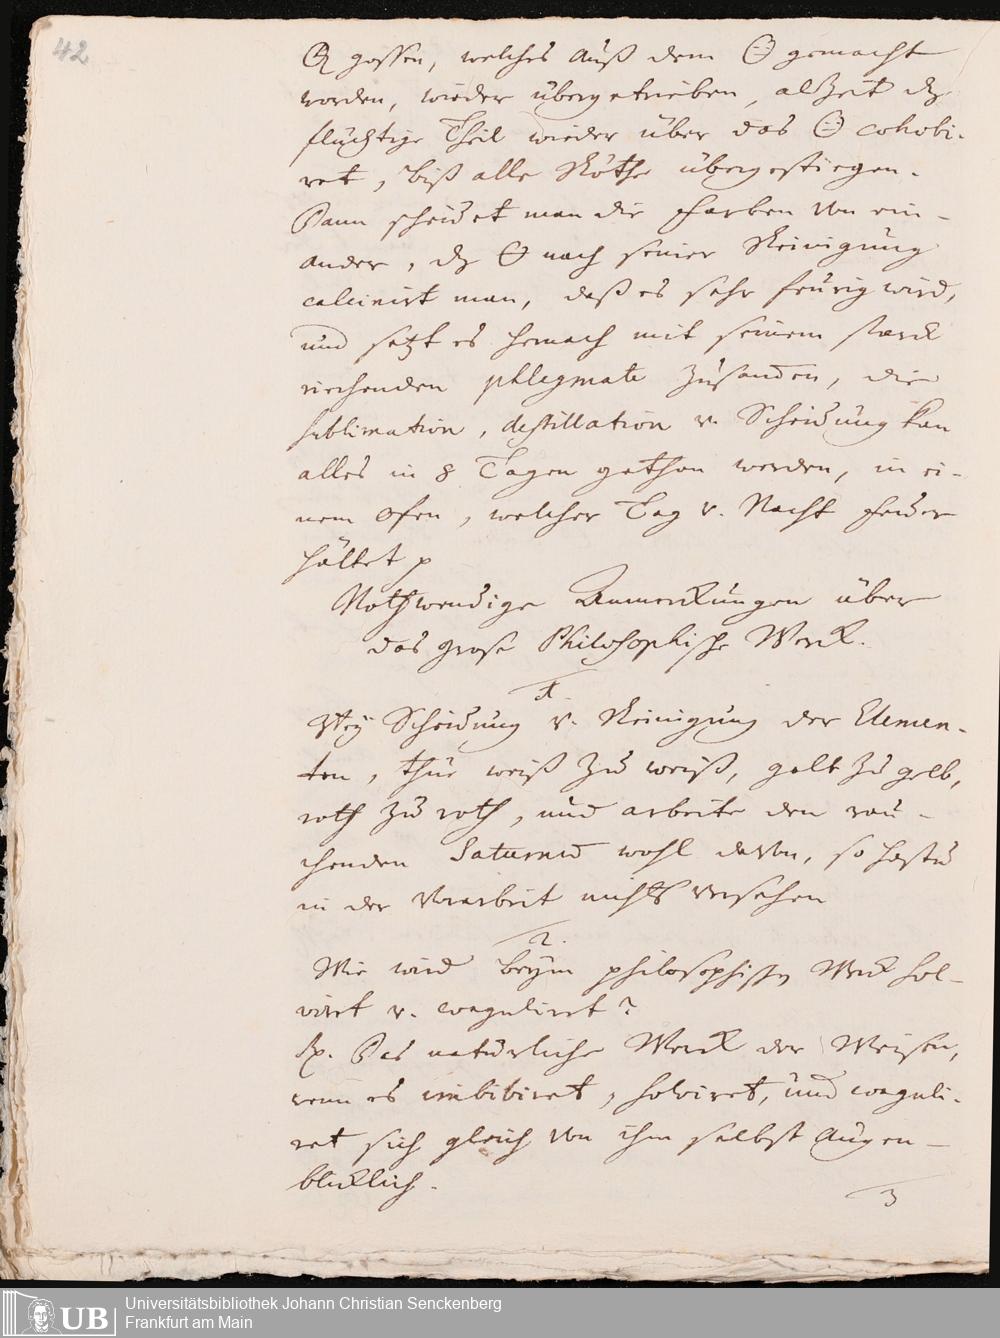 42
gossen, welches auß dem 🜔 gemacht
worden, wieder übergetrieben, alzeit dz
flüchtige Theil wieder über das 🜔 cohobi-
ret, biß alle Röthe übergestiegen.
Dann scheidet man die farben von ein-
ander, dz 🜔 nach seiner Reinigung
calcinirt man, daß es sehr feurig wird,
und setzt es hernach mit seinem starck
riechenden phlegmate zusam̅en, die
sublimation, destillation v. Scheidung kan
alles in 8 Tagen gethan werden, in ei-
nem Ofen, welcher Tag v. Nacht feuer
hältet p
Nothwendige Anmerckungen über
das grose Philosophische Werck.
1.
Bey Scheidung v. Reinigung der Elemen-
ten, thue weiß zu weiß, gelb zu gelb,
roth zu roth, und arbeite den rau-
chenden Saturnum wohl davon, so hastu
in der Vorarbeit nichts versehen
2.
Wie wird beym philosophischen Werck sol-
virt v. coagulirt?
Rx. Das natürliche Werck der Weisen,
wenn es imbibiret, solviret, und coaguli-
ret sich gleich von ihm selbst augen-
blicklich.
3
UB
Universitätsbibliothek Johann Christian Senckenberg
Frankfurt am Main